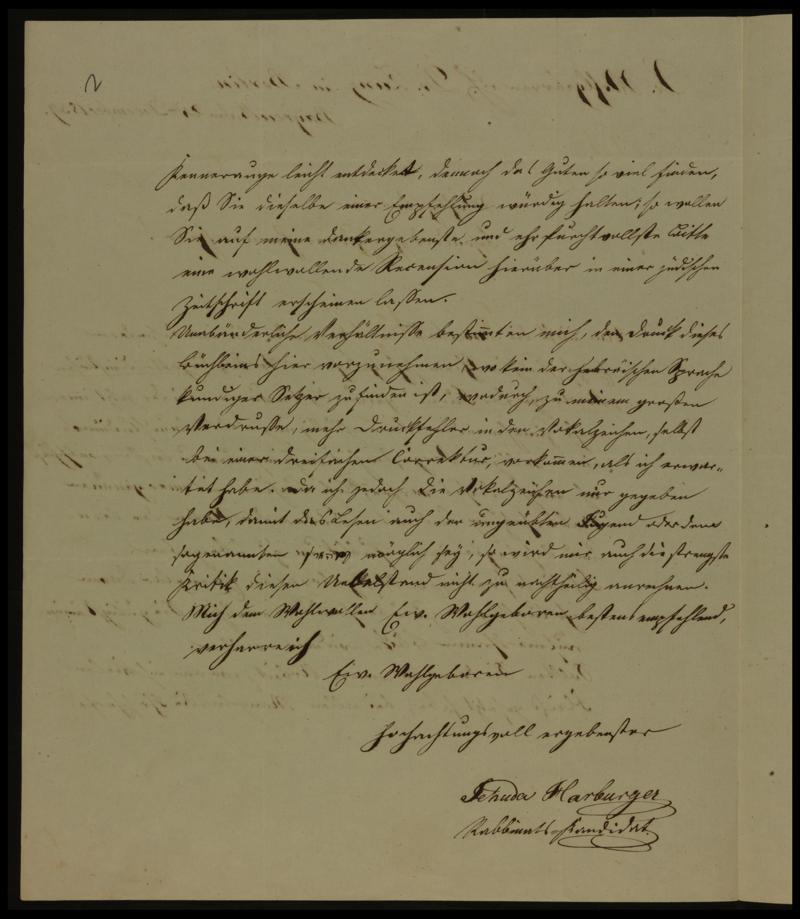 2
Kennerauge leicht entdecket, demnach des Guten so viel finden,
daß Sie dieselbe einer Empfehlung würdig halten; so wollen
Sie auf meine dankergebenste und ehrfurchtvollste Bitte
eine wohlwollende Recension hierüber in einer jüdischen
Zeitschrift erscheinen lassen.
Unabänderliche Verhältnisse bestim̅ten mich, den Druck dieses
Büchleins hier vorzunehmen, wo kein der hebräischen Sprache
kundiger Setzer zu finden ist, wodurch, zu meinem großen
Verdrusse, mehr Druckfehler in den Vokalzeichen, selbst
bei einer dreifachen Correktur, vorkom̅en, als ich erwar-
tet habe. Da ich jedoch die Vokalzeichen nur gegeben
habe, damit das Lesen auch der ungeübten Jugend oder dem
sogenannten möglich sey, so wird mir auch die strengste
Kritik diesen Uebelstand nicht zu nachtheilig anrechnen.
Mich dem Wohlwollen Ew. Wohlgeboren bestens empfehlend,
verharre ich
Ew. Wohlgeboren
hochachtungsvoll ergebenster
Jehuda Harburger
Rabbinats-Kandidat.